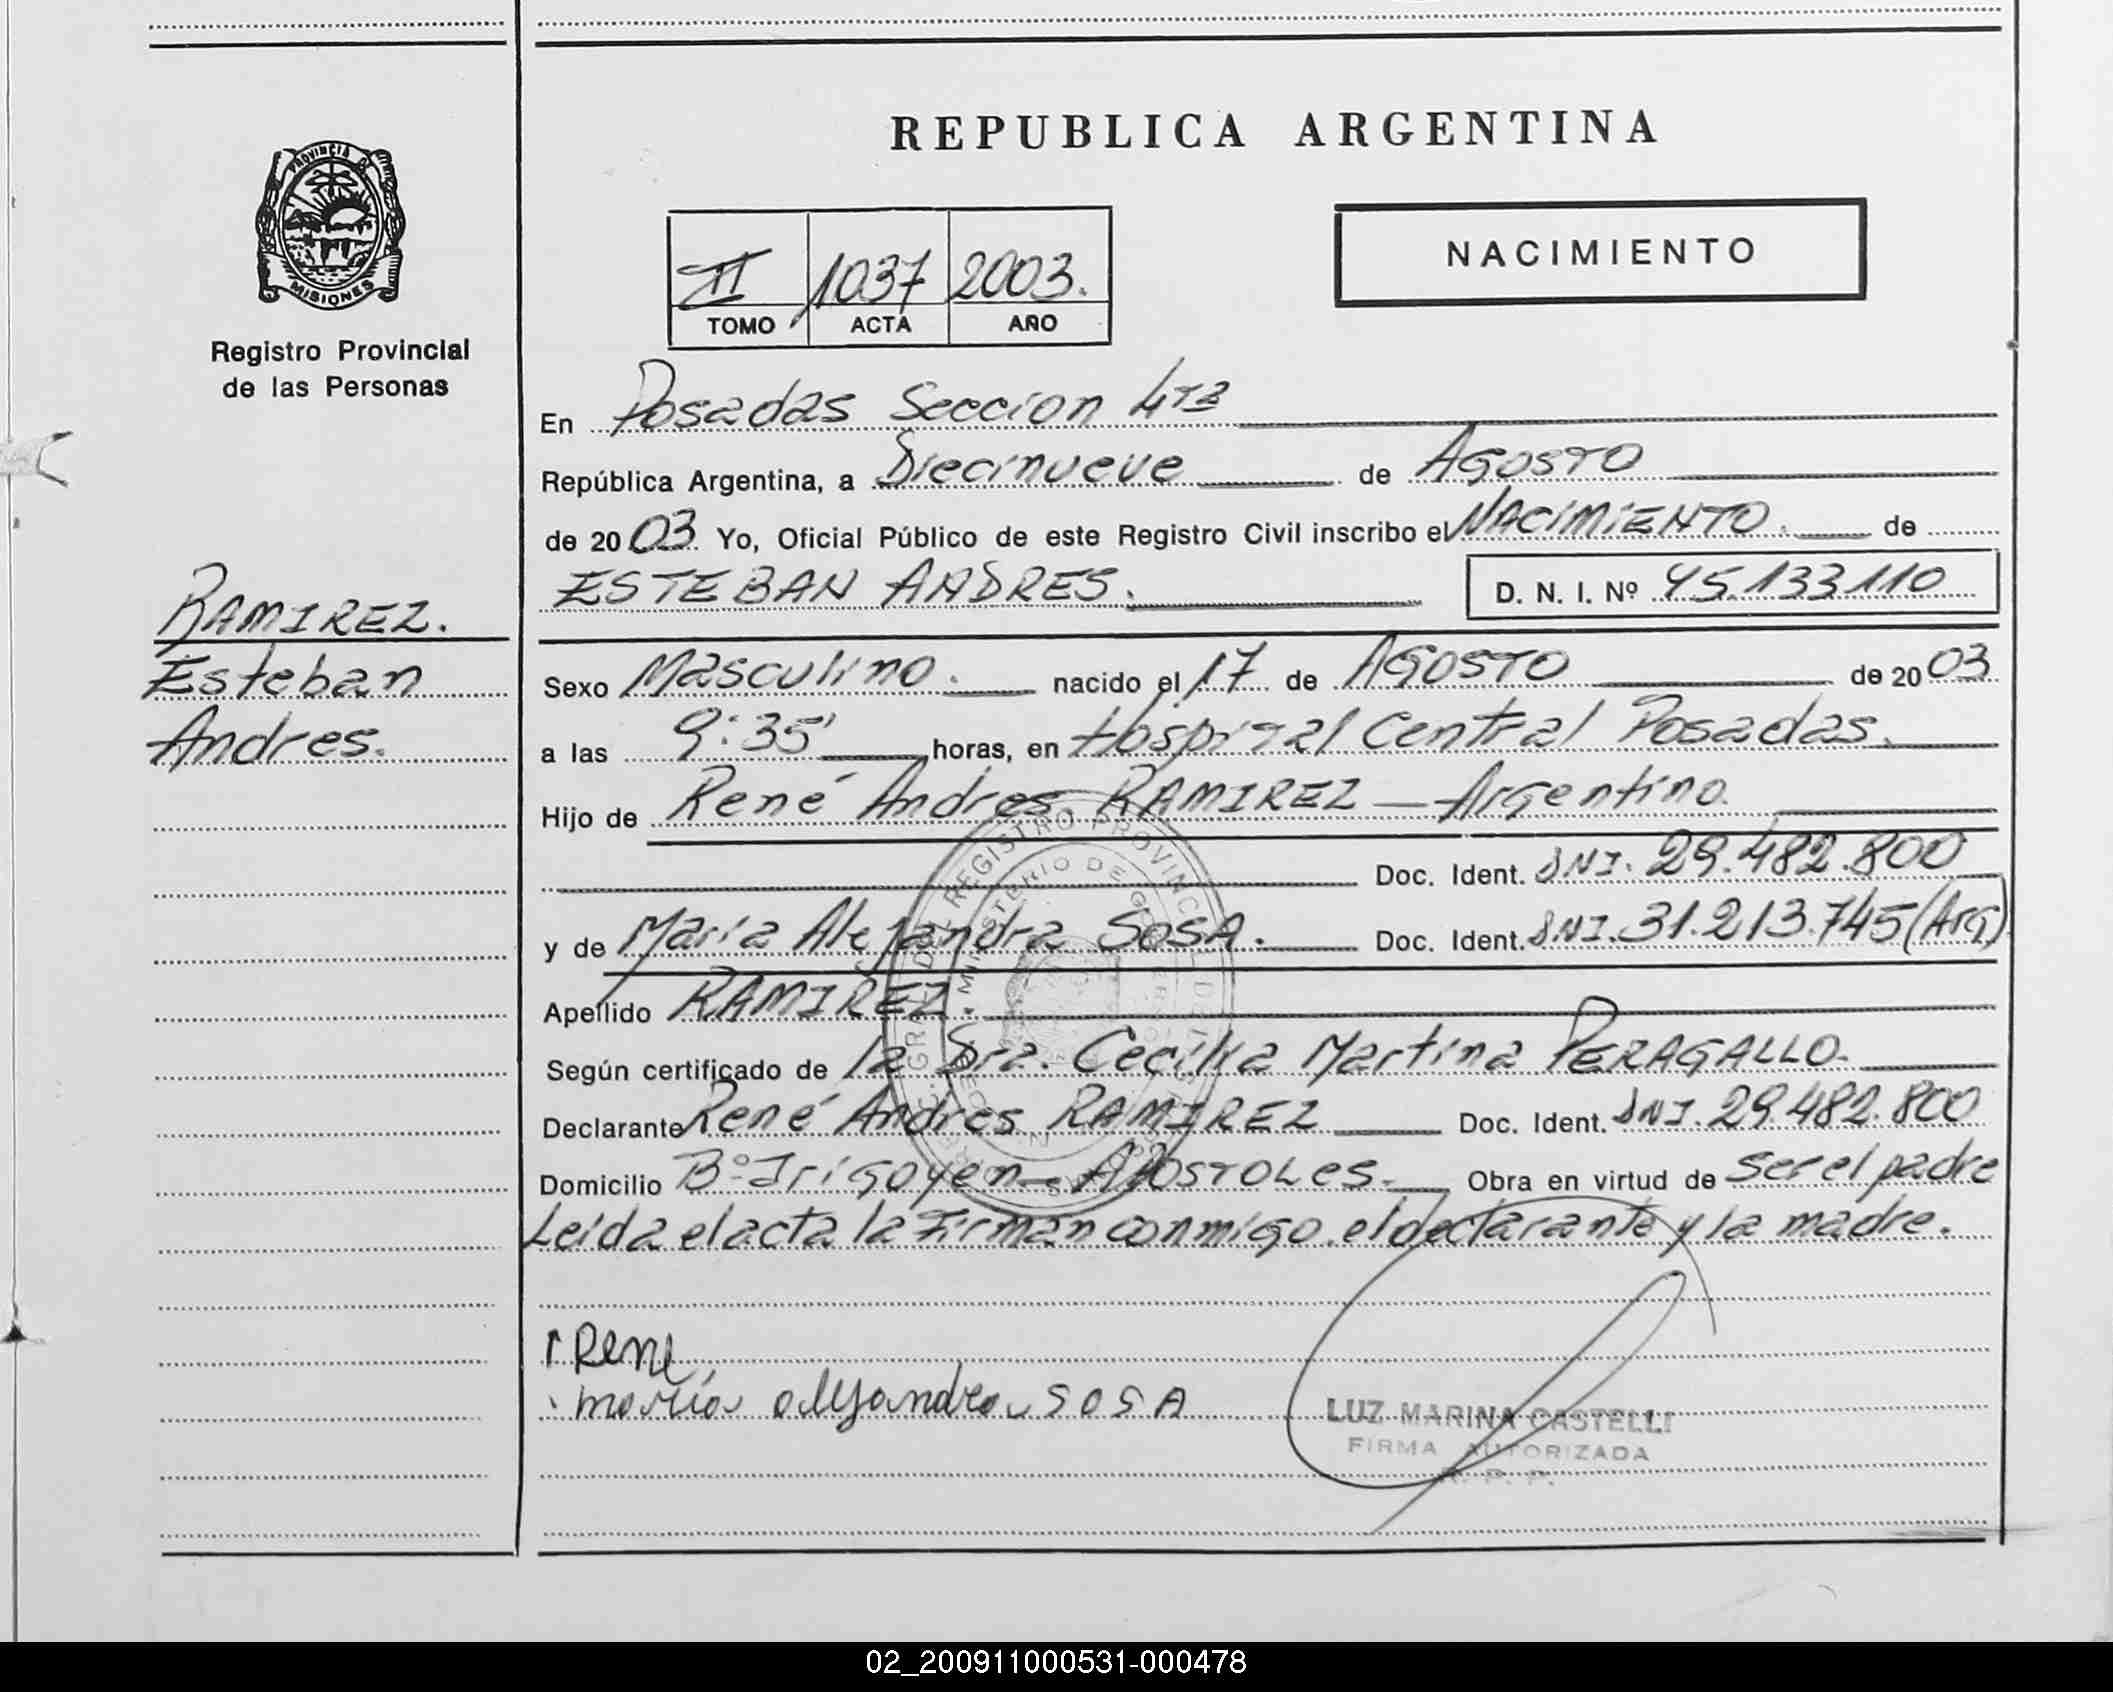 REPUBLICA ARGENTINA
PROVINCIA DE
MISIONES
Registro Provincial
de las Personas
NACIMIENTO
II 1037 2003.
TOMO ACTA AÑO
En Posadas Seccion 4ta
República Argentina, a Diecinueve de Agosto
de 20 03 Yo, Oficial Público de este Registro Civil inscribo el NACIMIENTO. de
ESTEBAN ANDRES. D. N. I. Nº 45.133.110
RAMIREZ.
Esteban
Andres.
Sexo Masculino. nacido el 17 de AGOSTO de 20 03
a las 9:35' horas, en Hospital Central Posadas.
Hijo de René Andres RAMIREZ — Argentino.
Doc. Ident. DNI. 29.482.800
y de María Alejandra SOSA. Doc. Ident. DNI. 31.213.745 (Arg)
Apellido RAMIREZ.
Según certificado de la Dra. Cecilia Martina PERAGALLO.
Declarante René Andres RAMIREZ Doc. Ident. DNI. 29.482.800
Domicilio Bº Irigoyen - APOSTOLES. Obra en virtud de ser el padre
Leida el acta la Firman conmigo el declarante y la madre.
Rene
maria alejandra SOSA
LUZ MARINA CASTELLI
FIRMA AUTORIZADA
R. P. P.
02_200911000531-000478